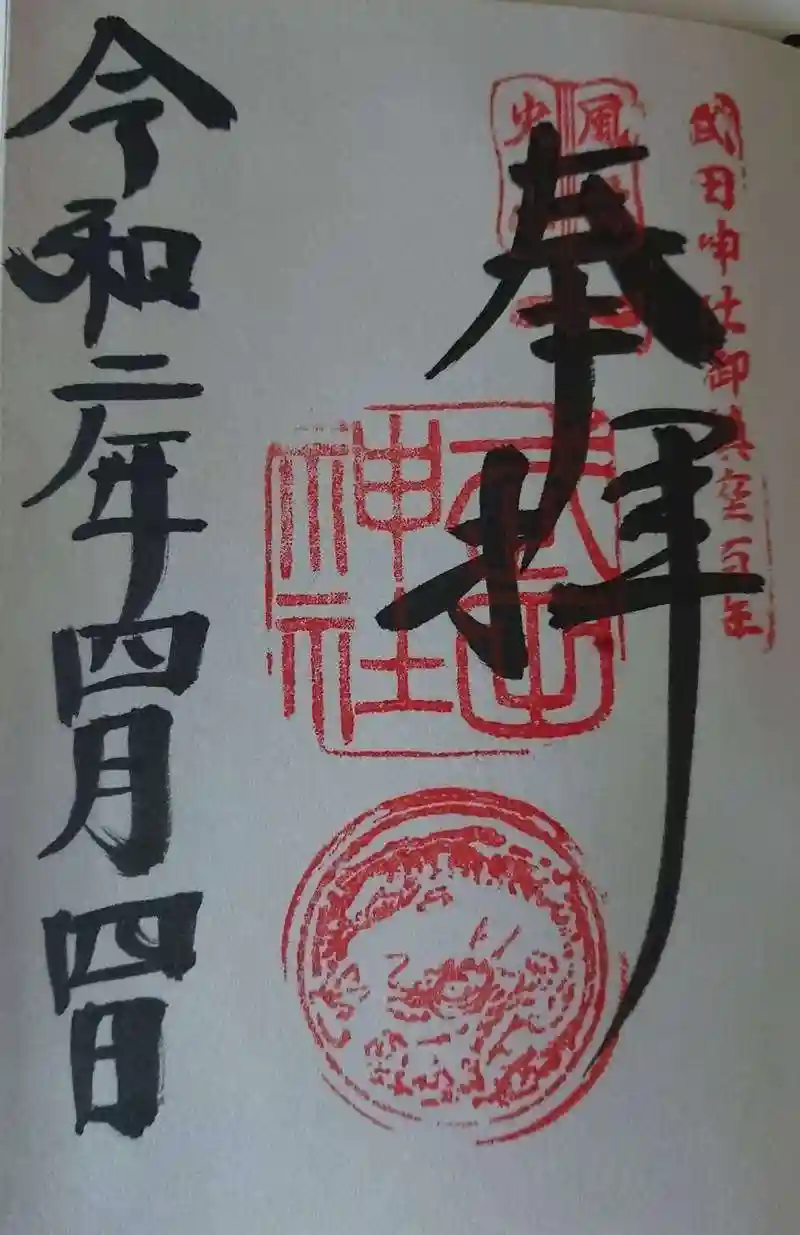 武田神社御鎮座百年
風
火
奉拝
武田
神社
令和二年四月四日